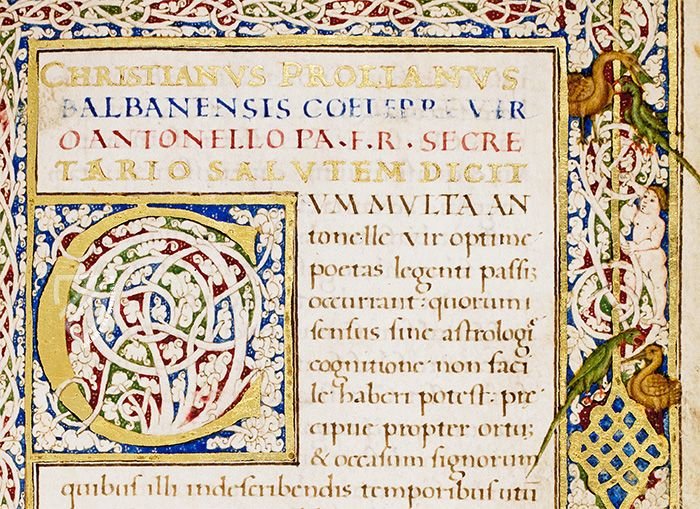 CHRISTIANVS PROLIANVS
BALBANENSIS COELEPRE VIR
O ANTONELLO PA·F·R· SECRE
TARIO SALVTEM DICIT
CVM MVLTA AN
tonelle vir optime
poetas legenti passi&#42843;
occurrant: quorum
sensus sine astrologi&#42843;
cognitione non faci
le haberi potest: pre
cipue propter ortu&#42843;
& occasum signorum
quibus illi indescribendis temporibus utu